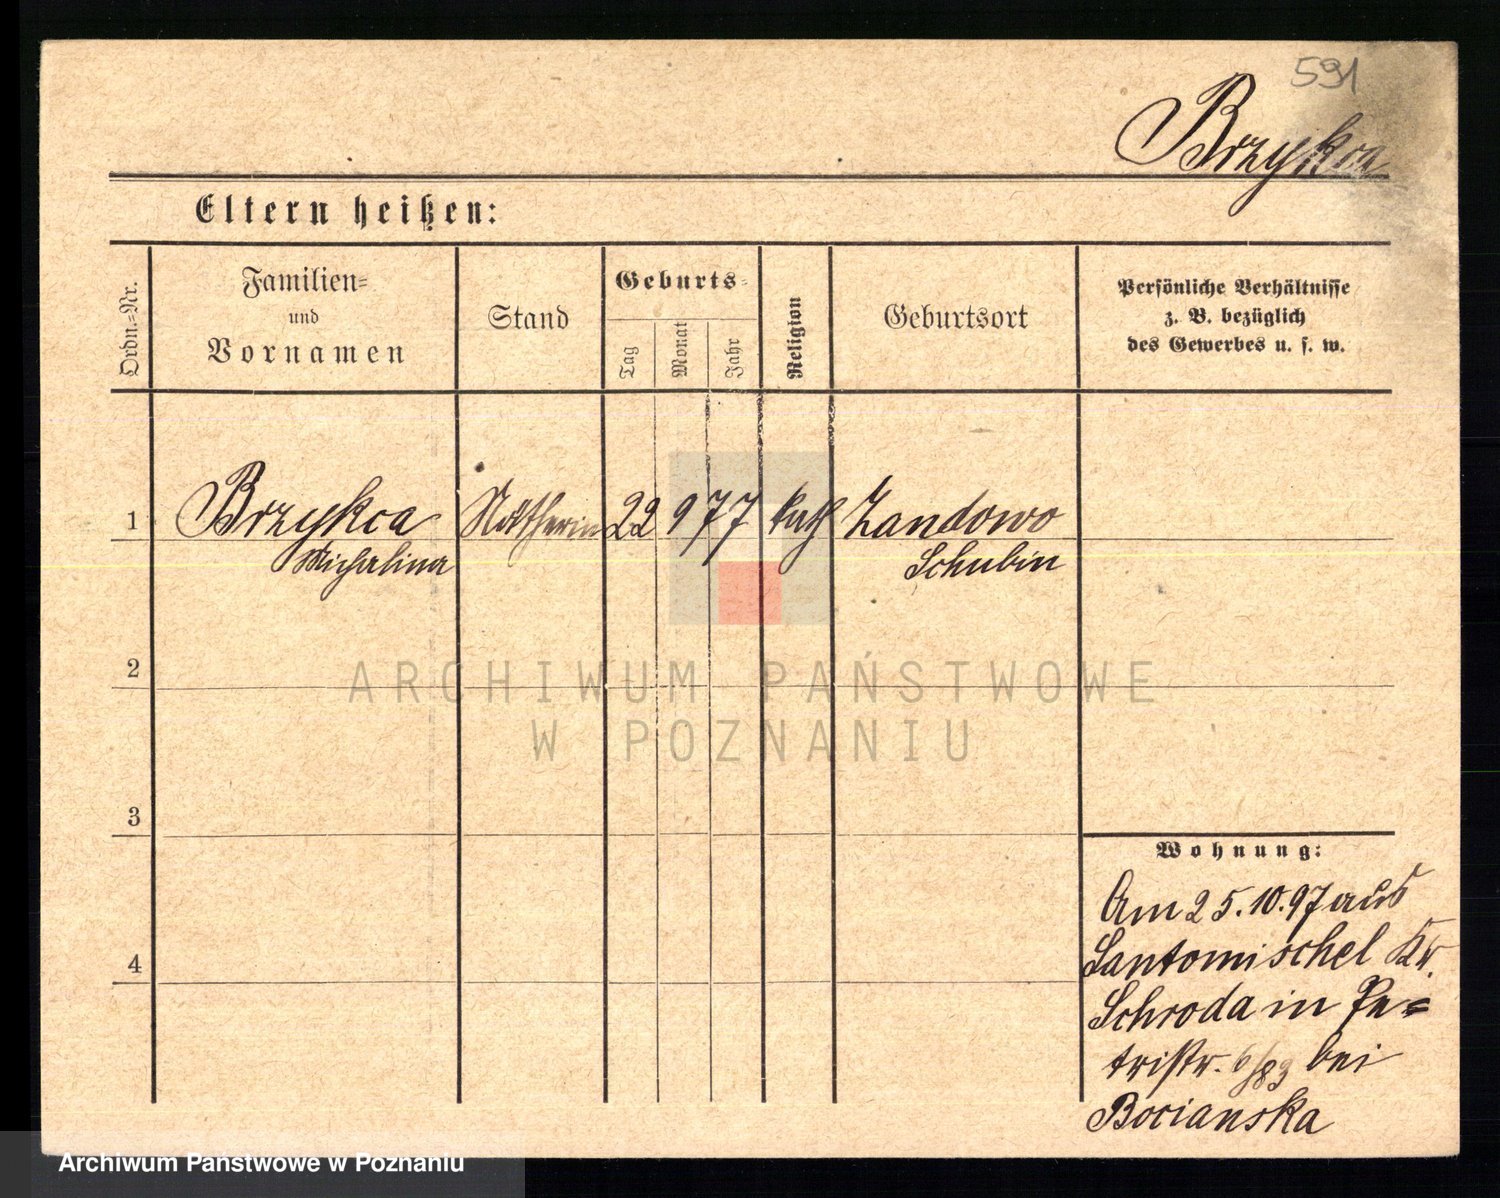 591
Brzykca
Eltern heißen:
Ordn.-Nr.
Familien-
und
Vornamen
Stand
Geburts-
Tag
Monat
Jahr
Religion
Geburtsort
Persönliche Verhältnisse
z. B. bezüglich
des Gewerbes u. s. w.
1 Brzykca Nätherin 22 9 77 kath Zandowo
Michalina Schubin
2
3
4
Wohnung:
Am 25.10.97 aus
Santomischel Kr.
Schroda in Pe-
tristr. 6/83 bei
Bocianska
ARCHIWUM PAŃSTWOWE
W POZNANIU
Archiwum Państwowe w Poznaniu